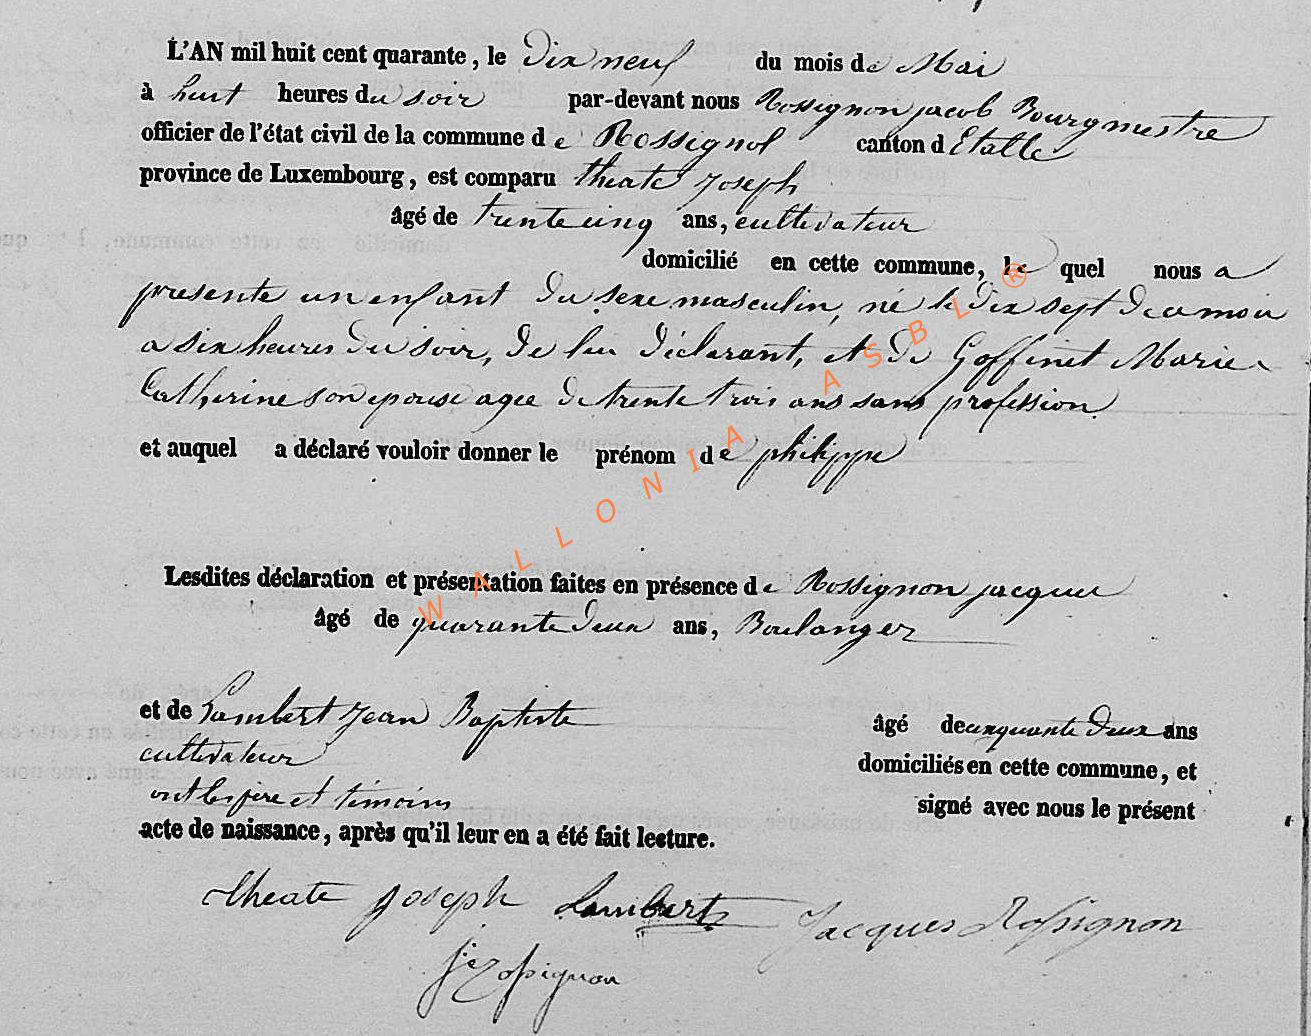 L'AN mil huit cent quarante, le Dix neuf du mois de Mai
à huit heures du soir par-devant nous Rossignon jacob Bourgmestre
officier de l'état civil de la commune de Rossignol canton d Etalle
province de Luxembourg, est comparu theate Joseph
âgé de trente cinq ans, cultivateur
domicilié en cette commune, le quel nous a
presente un enfant du sexe masculin, né le dix sept de ce mois
a six heures du soir, de lui déclarant, et de Goffinet Marie
Catherine son epouse agee de trente trois ans sans profession
et auquel a déclaré vouloir donner le prénom de philippe
Lesdites déclaration et présentation faites en présence de Rossignon jacques
âgé de quarante deux ans, Boulanger
et de Lambert Jean Baptiste âgé de cinquante deux ans
cultivateur domiciliés en cette commune, et
ont les pere et témoins signé avec nous le présent
acte de naissance, après qu'il leur en a été fait lecture.
theate joseph Lambert Jacques Rossignon
Rossignon
WALLONIA ASBL ®